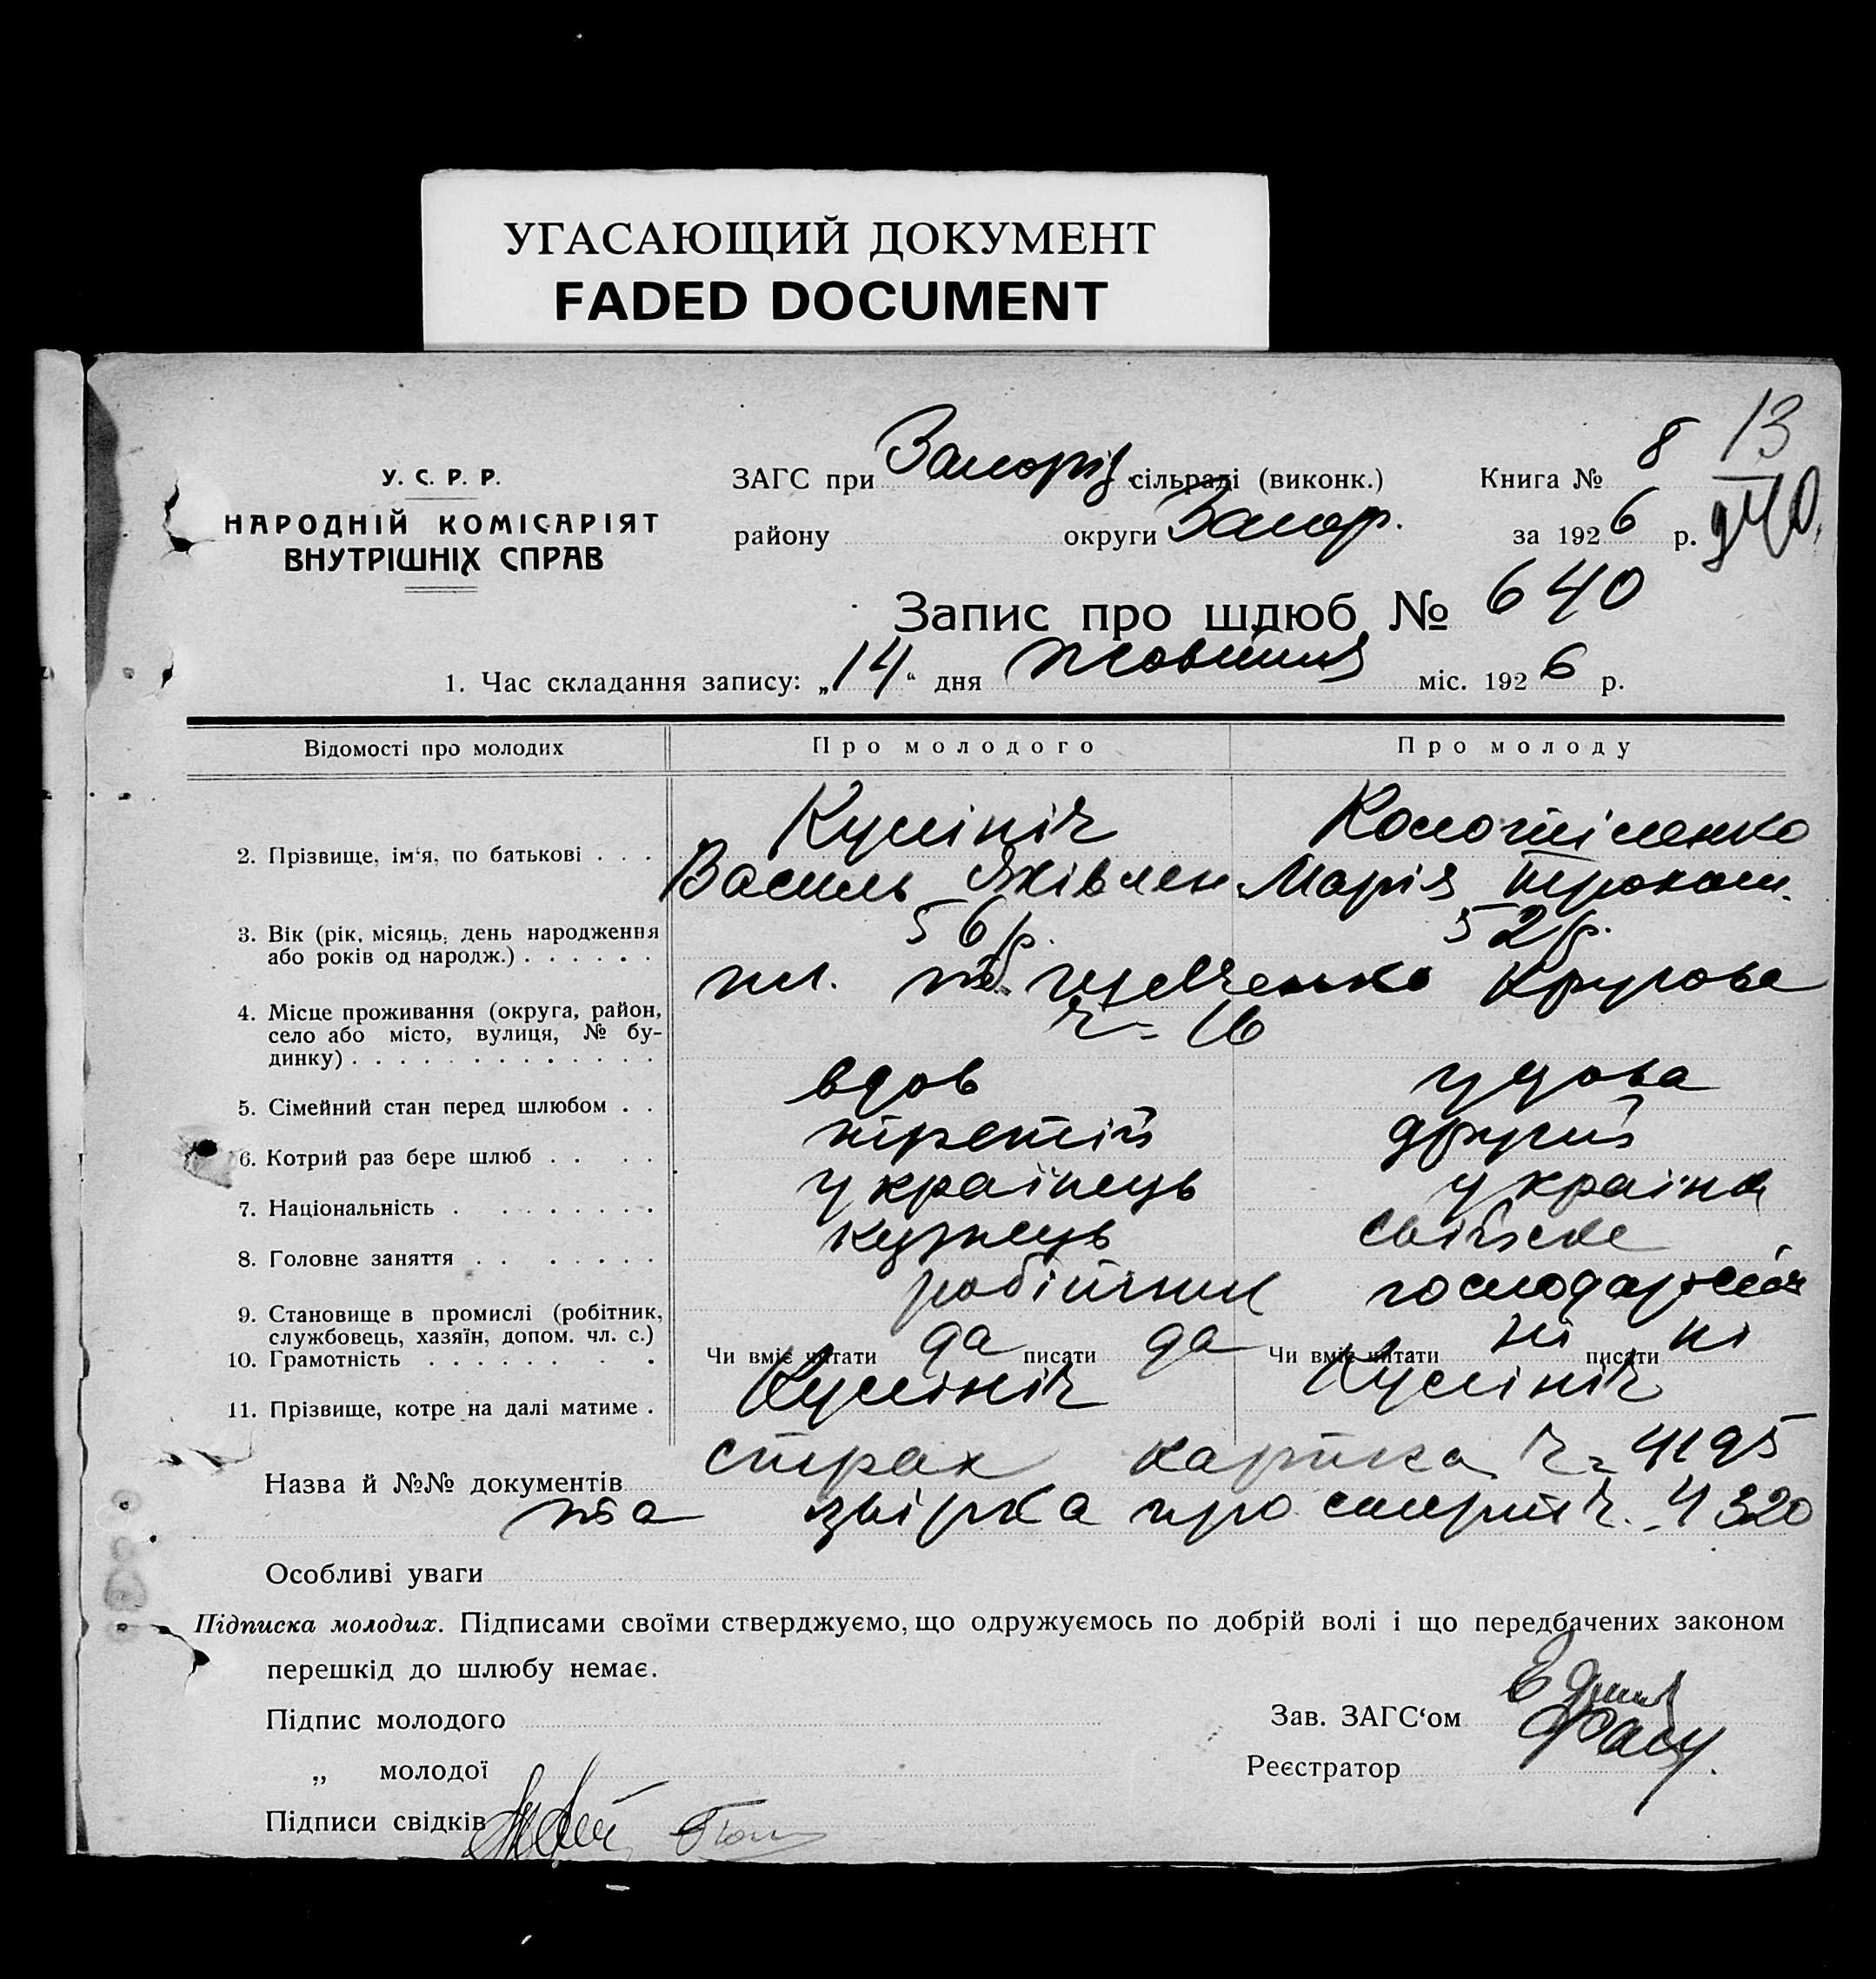 УГАСАЮЩИЙ ДОКУМЕНТ
FADED DOCUMENT
13
У. С. Р. Р.
НАРОДНІЙ КОМІСАРІЯТ
ВНУТРІШНІХ СПРАВ
ЗАГС при Запоріз. сільраді (виконк.) Книга № 8
району округи Запор. за 1926 р.
Запис про шлюб № 640
1. Час складання запису: „14“ дня жовтня міс. 1926 р.
Відомості про молодих Про молодого Про молоду
2. Прізвище, ім‘я, по батькові . . . Кулініч Коломісленко
Василь Яківлен Марія
3. Вік (рік, місяць, день народження 56 р. 52 р.
або років од народж.) . . . . . .
4. Місце проживання (округа, район, пл. Шевченко Кругова
село або місто, вулиця, № бу- ч = 16
динку) . . . . . . . . . . . . .
5. Сімейний стан перед шлюбом . . вдов удова
6. Котрий раз бере шлюб . . . . третій другий
7. Національність . . . . . . . . українець україна
8. Головне заняття . . . . . . . кузнець свійске
9. Становище в промислі (робітник, робітник
службовець, хазяїн, допом. чл. с.)
10. Грамотність . . . . . . . . Чи вміє читати да писати да Чи вміє читати ні писати ні
11. Прізвище, котре на далі матиме . Кулініч Кулініч
Назва й №№ документів страх картка ч = 4195
та звірка про смерть ч. - 4320
Особливі уваги
Підписка молодих. Підписами своїми стверджуємо, що одружуємось по добрій волі і що передбачених законом
перешкід до шлюбу немає.
Підпис молодого Зав. ЗАГС‘ом
„ молодої Реєстратор
Підписи свідків